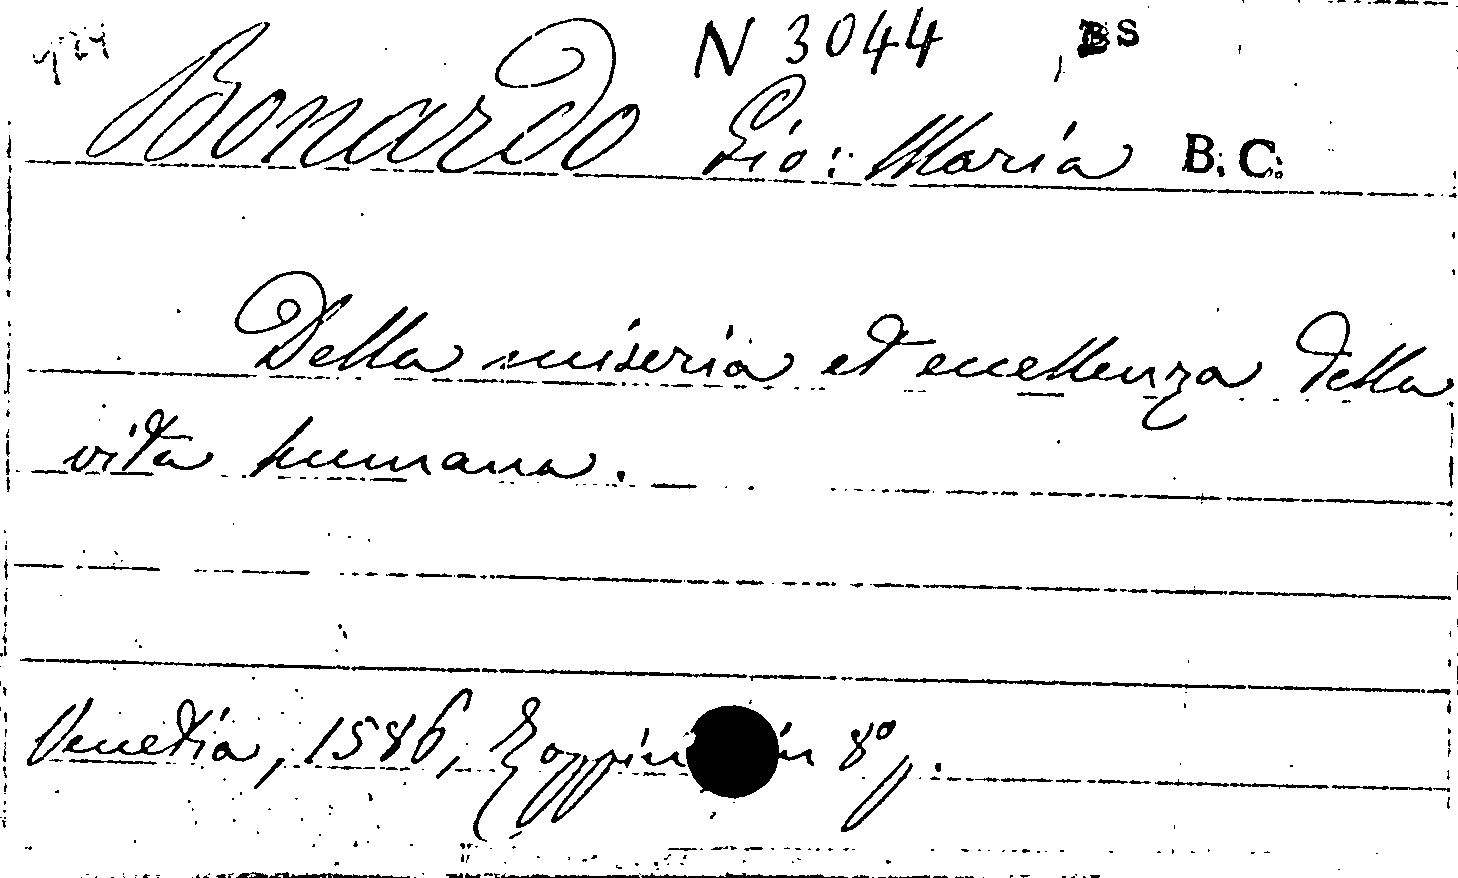 N 3044 BS
Bonardo Gio: Maria B. C.
Della miseria et eccellenza della
vita humana.
Venetia, 1586, in 8º p.